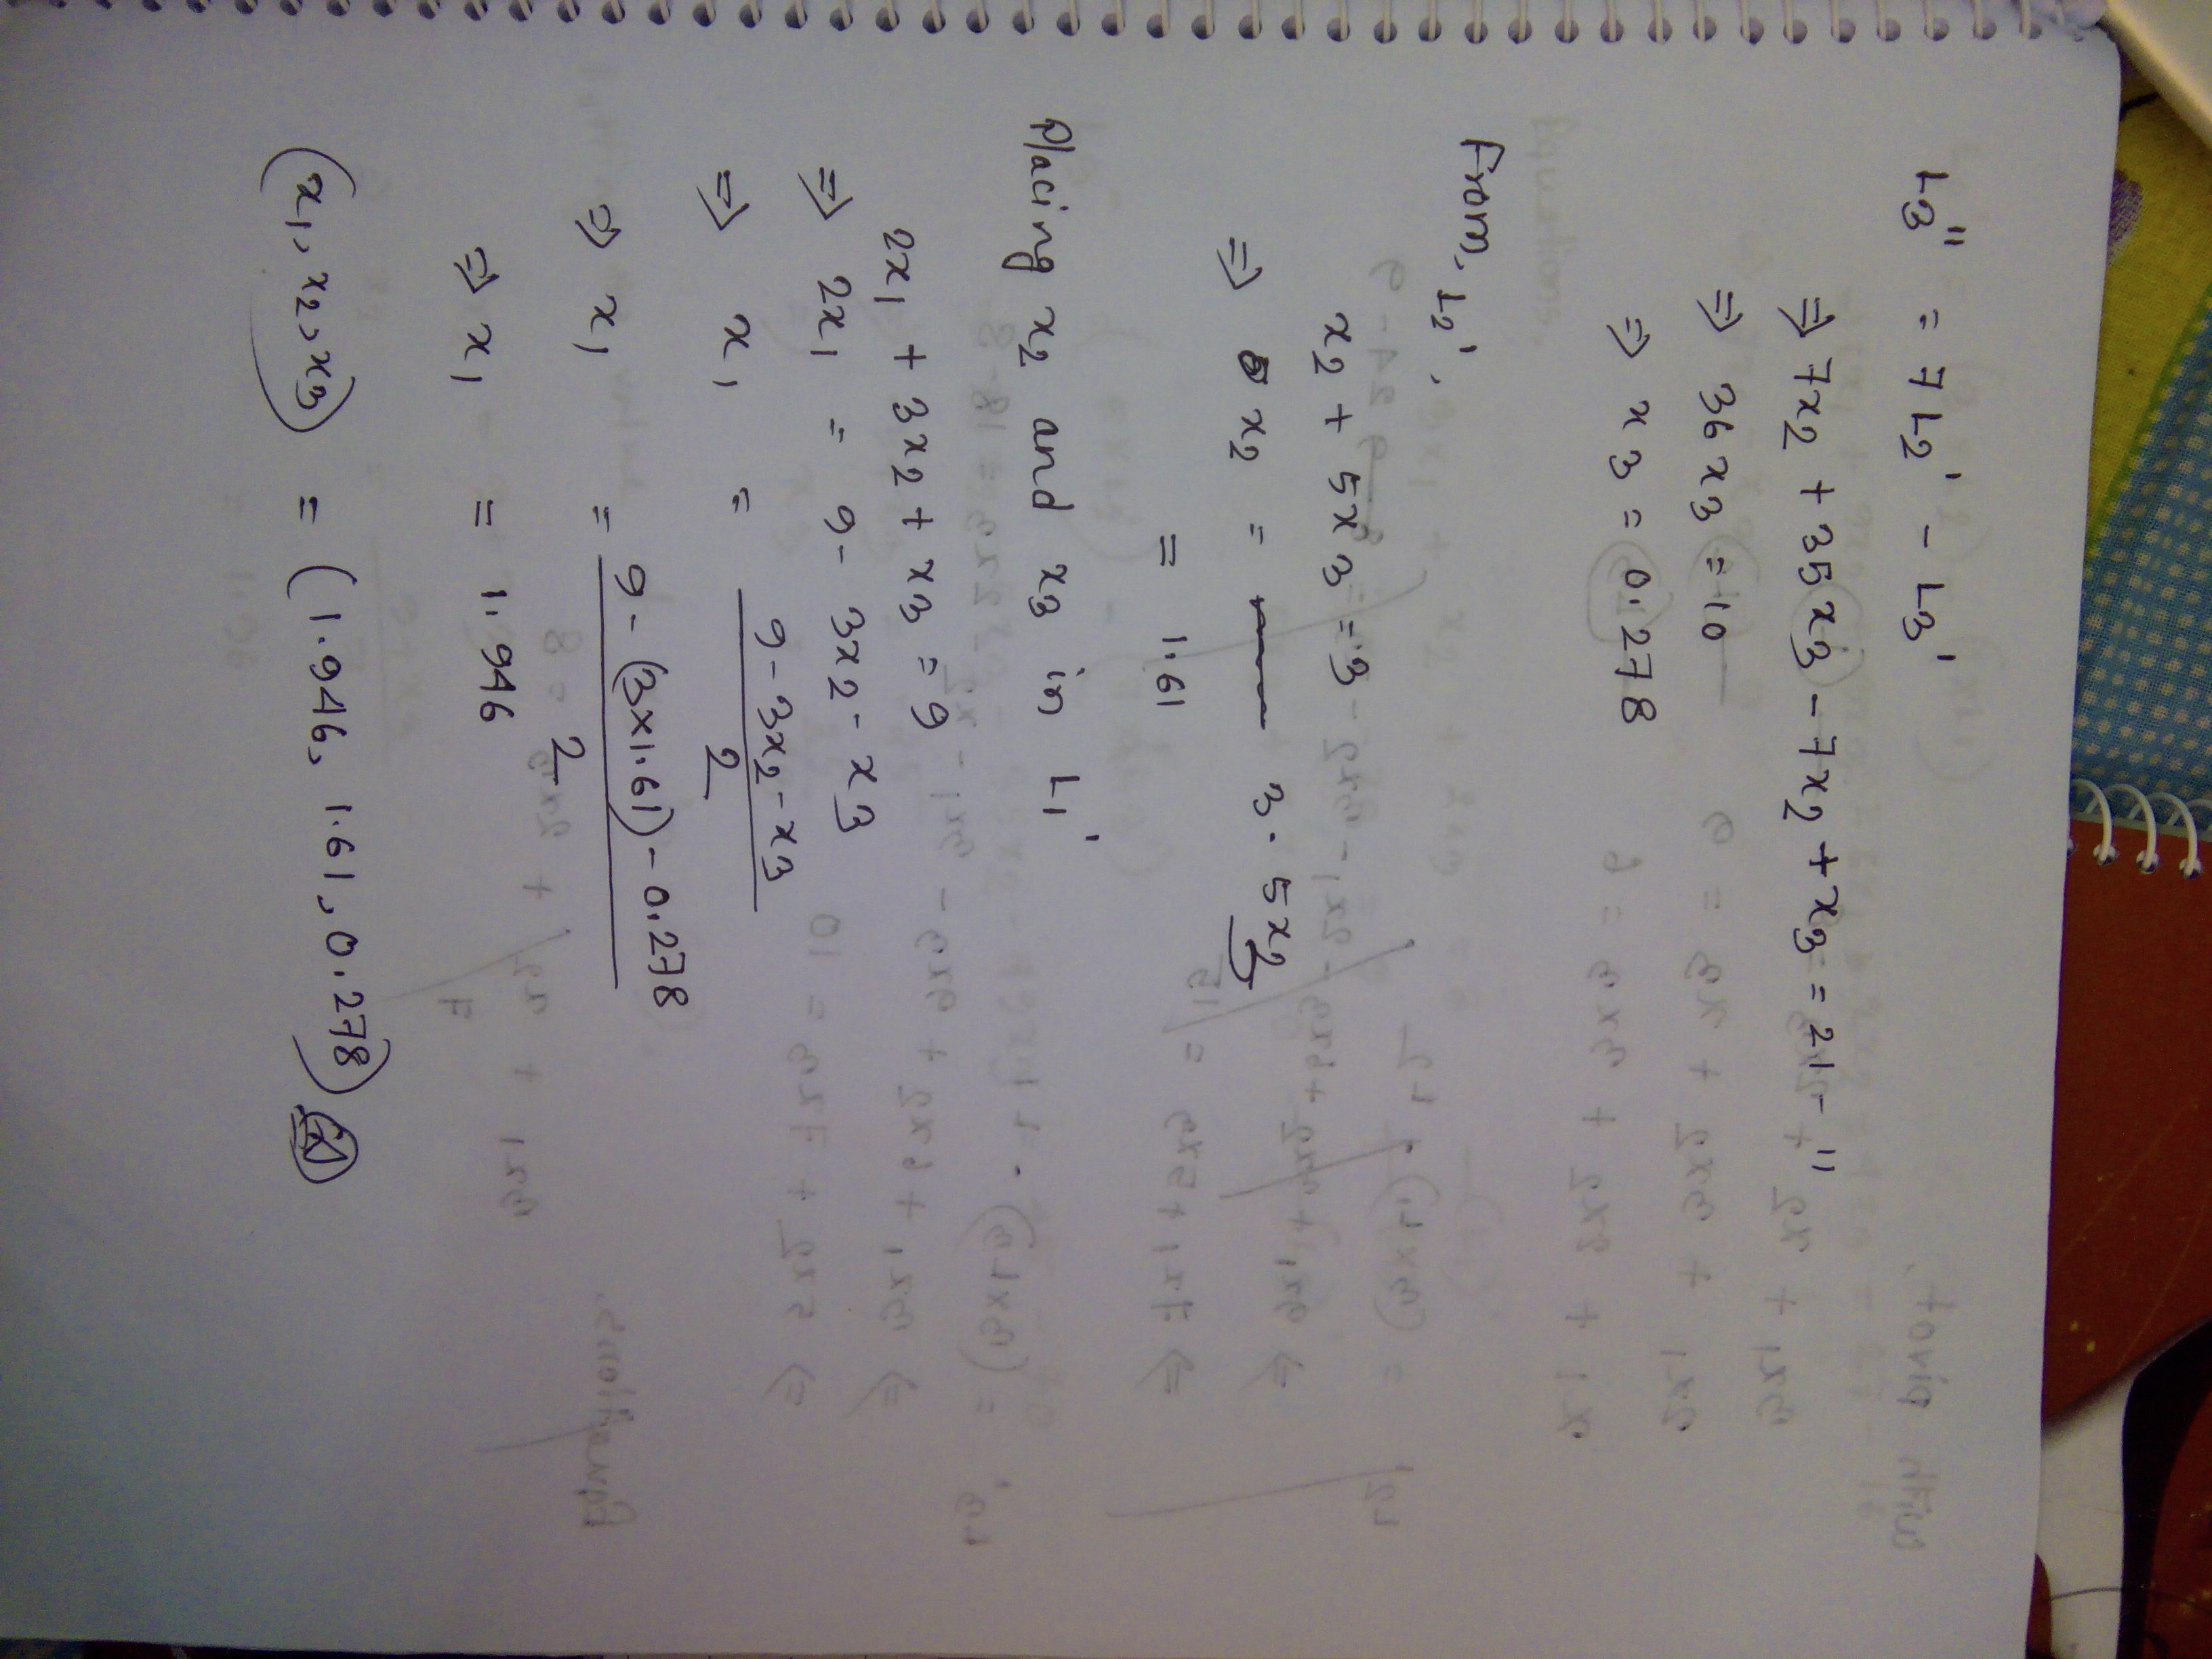 L3'' = 7L2' - L3'
⇒ 7x2 + 35x3 - 7x2 + x3 = 21 - 11
⇒ 36x3 = 10
⇒ x3 = 0.278
From, L2',
x2 + 5x3 = 3
⇒ x2 = 3 - 5x3
= 1.61
Placing x2 and x3 in L1'
2x1 + 3x2 + x3 = 9
⇒ 2x1 = 9 - 3x2 - x3
⇒ x1 = (9 - 3x2 - x3) / 2
⇒ x1 = (9 - (3×1.61) - 0.278) / 2
⇒ x1 = 1.946
(x1, x2, x3) = (1.946, 1.61, 0.278)